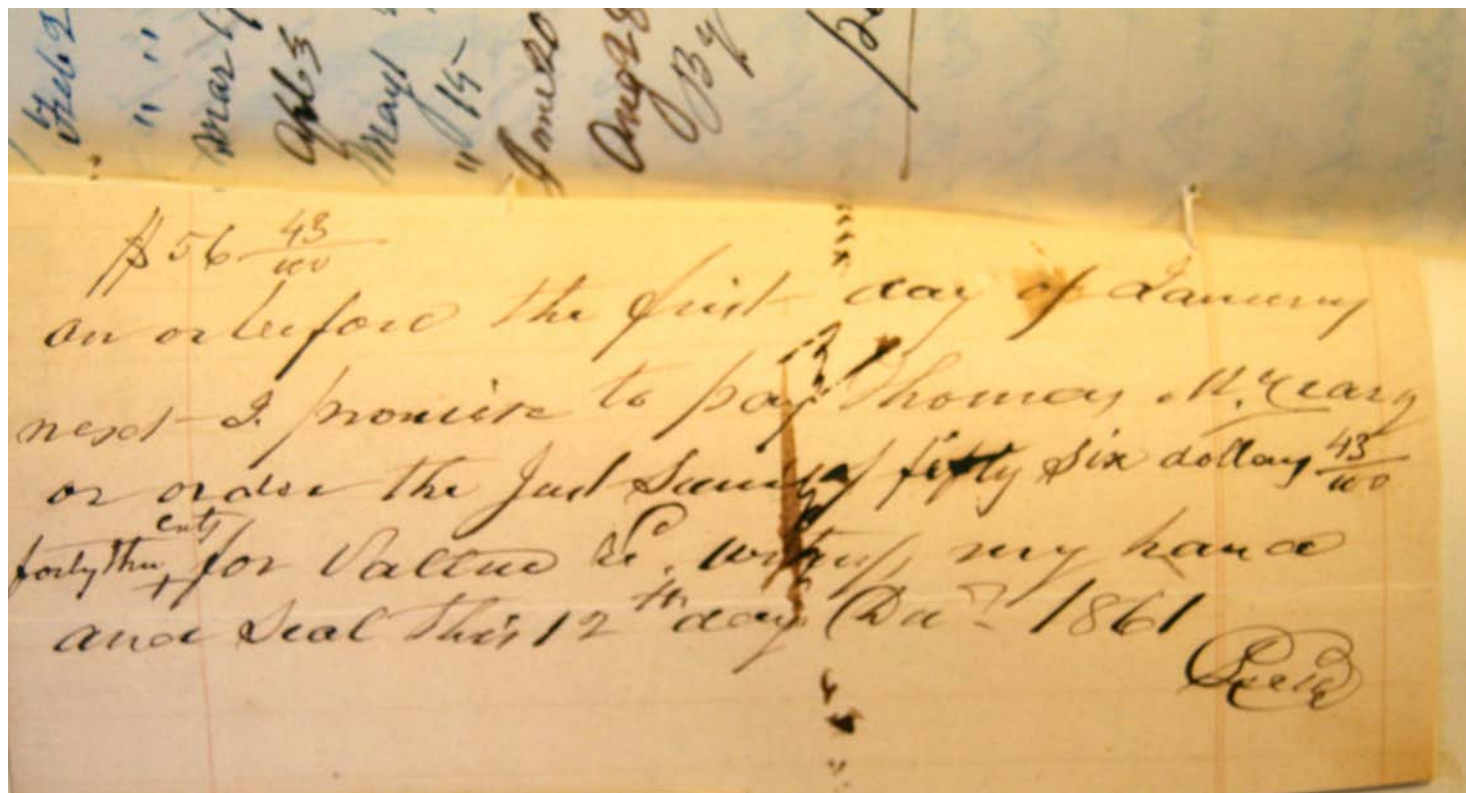 Feb 2
" "
Mar
Apl 3
May
" 15
June 20
Aug 28
By
$ 56 43/100
on or before the first day of January
next I promise to pay Thomas McCrary
or order the Just Sum of fifty six dollars 43/100
forty three cents for Vallue Rc. witness my hand
and Seal this 12th day 1861
Seal